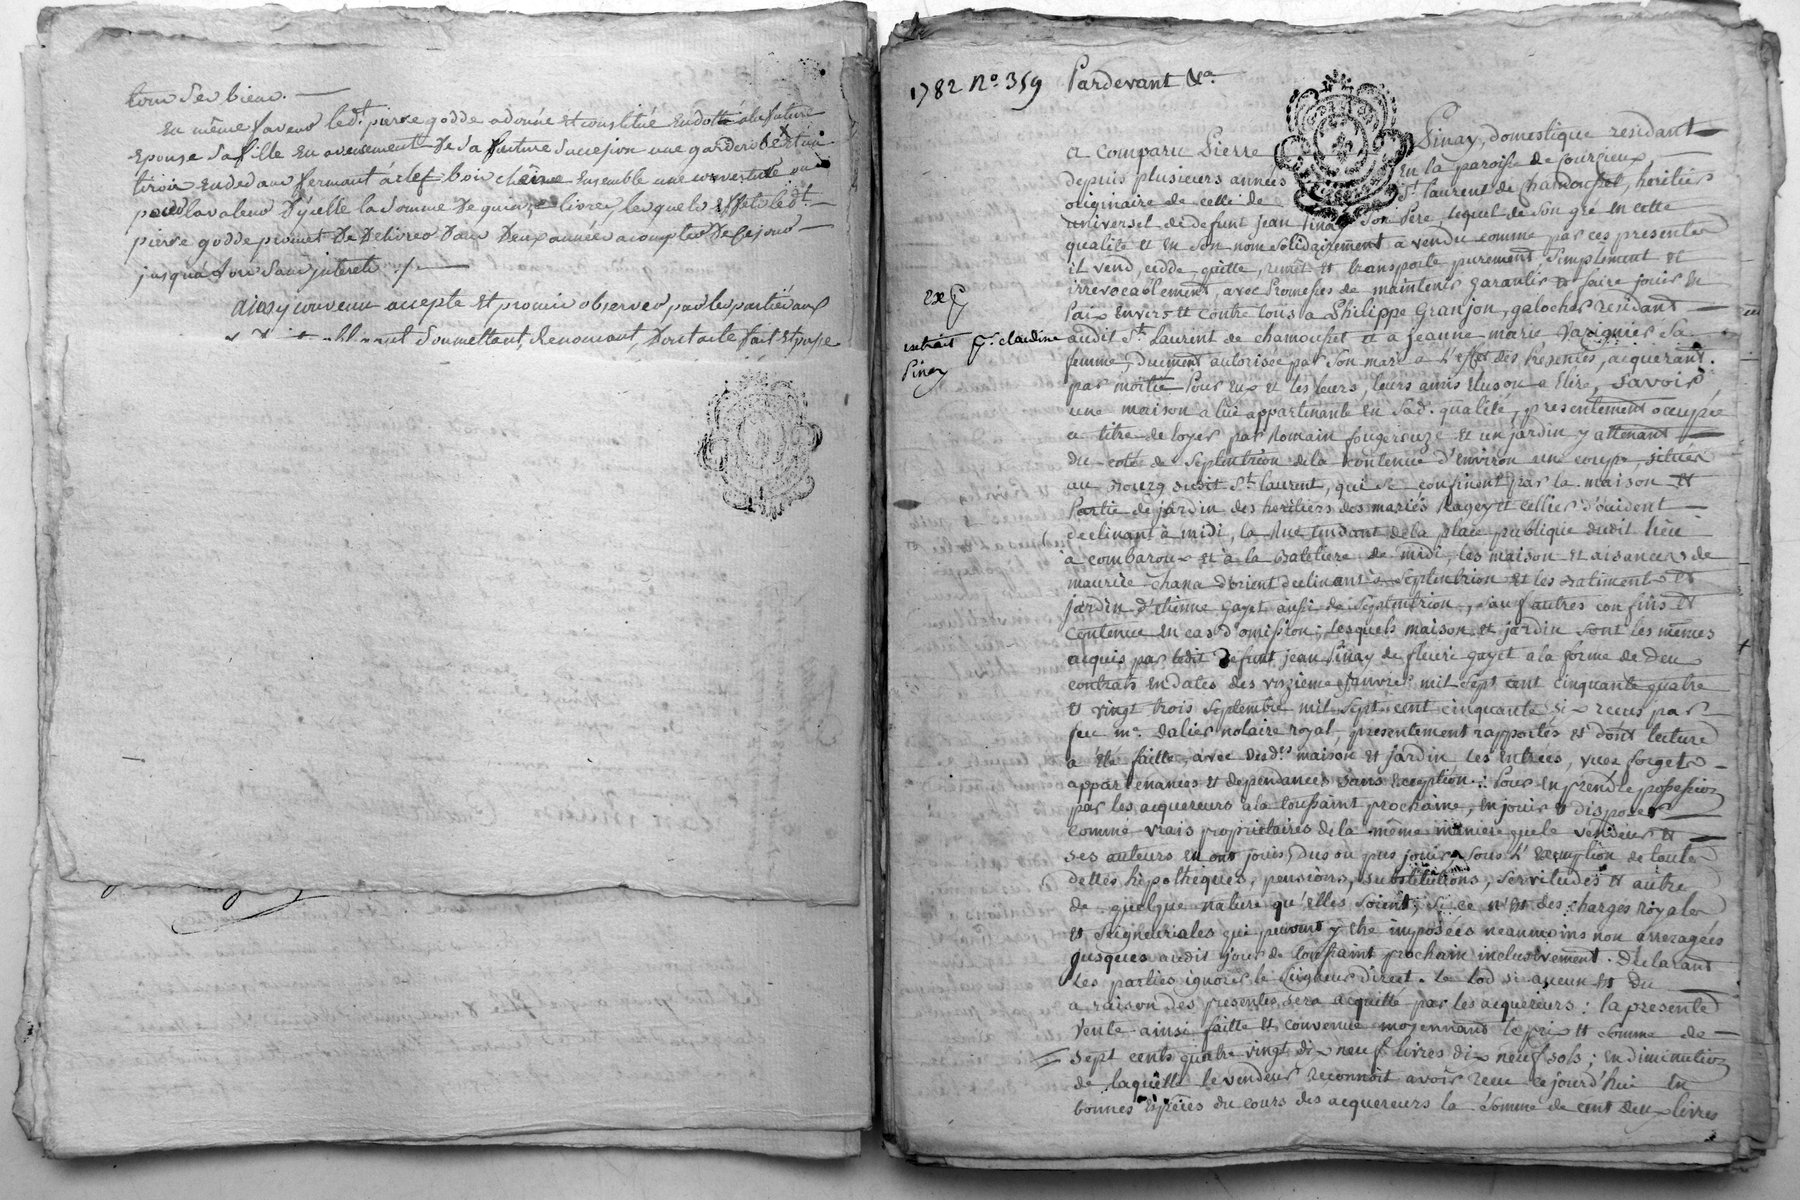 tous ses biens.
En même faveur led.t pierre godde a donné et constitué en dotte a la future
Epouse sa fille en avenement de sa future succession une garderobe
tiroir en dedans fermant a clef bois chêne Ensemble une couverture ou
pour la valeur d'ycelle la somme de quinze livres, lesquels effets led.t
pierre godde promet de delivrer dans deux années a compter de ce jour
jusqu'alors sans interets
ainsy convenu accepté et promis observer par les parties aux
soumettant, Renonceant, dont acte fait et passé
1782 N.o 359 Pardevant &.a
a comparu Pierre Pinay, domestique residant
depuis plusieurs années en la paroisse de sourcieux,
originaire de celle de S.t laurent de Chamousset, heritier
universel de defunt jean Pinay son Pere, lequel de son gré en cette
qualité et en son nom solidairement a vendu comme par ces presentes
il vend, cedde, quitte, remet et transporte purement simplement et
irrevocablement, avec Promesses de maintenir garantir et faire jouir en
Paix Envers et contre tous a Philippe Granjon, galocher residant
audit S.t Laurent de chamousset et a jeanne marie Varignier sa
femme, Duement autorisée par son mari a l'effet des Presentes, acquerant
par moitié Pour eux et les leurs, leurs amis elus ou a Elire, savoir
une maison a lui appartenante en sad. qualité, presentement occupée
a titre de loyer par Romain fougerouze et un jardin y attenant
du coté de septentrion de la contenue d'environ une coupe, situés
au Bourg dudit S.t laurent, qui se confinent par la maison et
Partie de jardin des heritiers des mariés Ragey et cellier d'occident
declinant a midi, la Rue tendant de la place publique dudit lieu
à combaroux et à la Bateliere de midi, les maison et aisances de
maurice chana d'orient declinant a septentrion et les batiments et
jardin d'etienne gayet aussi de septentrion, sauf autres confins et
contenue en cas d'omission; lesquels maison et jardin sont les mêmes
acquis par ledit defunt jean Pinay de fleuri gayet a la forme de deux
contrats en dates des onzieme janvier mil sept cent cinquante quatre
et vingt trois septembre mil sept cent cinquante six recus par
feu m.e dalier notaire royal, presentement rapportés et dont lecture
a été faitte, avec desd.ts maison et jardin les entrées, vues forgets
appartenances et dependances sans exception: Pour en prendre possession
par les acquereurs a la toussaint prochaine, en jouir et disposer
comme vrais proprietaires de la même maniere que le vendeur et
ses auteurs en ont jouis, dus ou pus jouir, sous l'exemption de toutes
dettes hipotheques, pensions, substitutions, servitudes et autre
de quelque nature qu'elles soient, si ce n'est des charges royales
et seigneuriales qui peuvent y être imposées neanmoins non arreragées
jusques audit jour de toussaint prochain inclusivement. Declarant
les parties ignorer le seigneur direct. Le lod si aucun est du
a raison des presentes sera acquitté par les acquereurs: la presente
vente ainsi faitte et convenue moyennant le prix et somme de
sept cents quatre vingt dix neuf livres dix neuf sols; en diminution
de laquelle le vendeur reconnoit avoir recu cejourd'hui en
bonnes especes du cours des acquereurs la somme de cent deux livres
exp.
extrait p.r claudine
Pinay